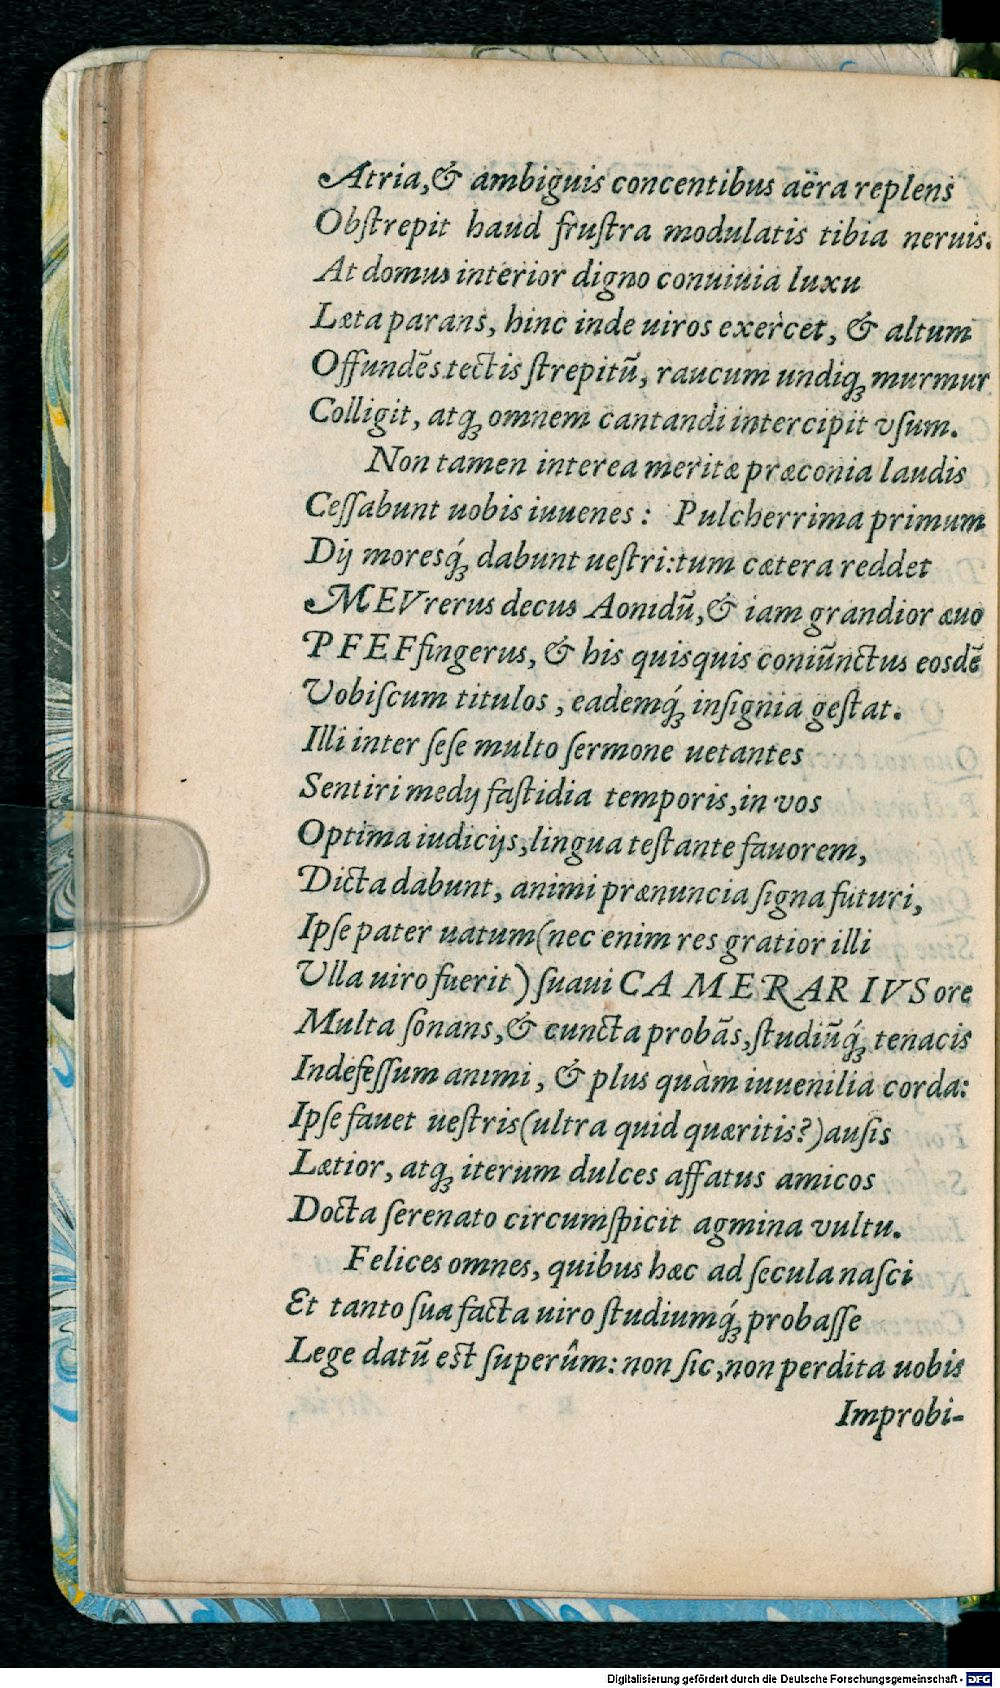 Atria,& ambiguis concentibus aëra replens
Obſtrepit haud fruſtra modulatis tibia neruis.
At domus interior digno conuiuia luxu
Læta parans, hinc inde uiros exercet, & altum
Offundẽs tectis ſtrepitũ, raucum undiqꝫ murmur
Colligit, atqꝫ omnem cantandi intercipit vſum.
Non tamen interea meritæ præconia laudis
Ceſſabunt uobis iuuenes: Pulcherrima primum
Dij moresq́ꝫ dabunt ueſtri:tum cætera reddet
MEVrerus decus Aonidũ,& iam grandior æuo
PFEFfingerus, & his quisquis coniũnctus eosdẽ
Vobiſcum titulos, eademq́ꝫ inſignia geſtat.
Illi inter ſeſe multo ſermone uetantes
Sentiri medij faſtidia temporis,in vos
Optima iudicijs,lingua teſtante fauorem,
Dicta dabunt, animi prænuncia ſigna futuri,
Ipſe pater uatum(nec enim res gratior illi
Vlla uiro fuerit) ſuaui CAMERARIVS ore
Multa ſonans,& cuncta probãs,ſtudiũq́ꝫ tenacis
Indefeſſum animi, & plus quàm iuuenilia corda:
Ipſe fauet ueſtris(ultra quid quæritis?)auſis
Lætior, atqꝫ iterum dulces affatus amicos
Docta ſerenato circumſpicit agmina vultu.
Felices omnes, quibus hæc ad ſecula naſci
Et tanto ſua facta uiro ſtudiumq́ꝫ probaſſe
Lege datũ eſt ſuperûm: non ſic,non perdita uobis
Improbi-
Digitalisierung gefördert durch die Deutsche Forschungsgemeinschaft - DFG